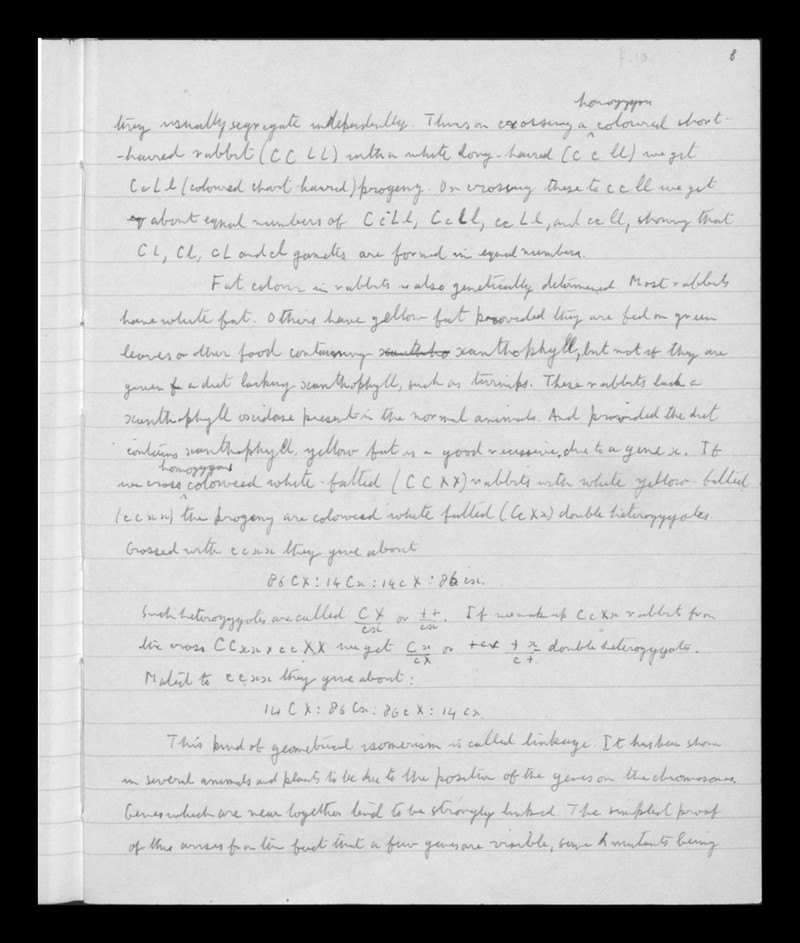 8
homozygous
they usually segregate independently. Thus on crossing a coloured short-
-haired rabbit (CC LL) with a white long-haired (cc ll) we get
CcLl (coloured short haired) progeny. On crossing these to cc ll we get
about equal numbers of CcLl, Ccll, ccLl, and cc ll, showing that
CL, Cl, cL and cl gametes are formed in equal numbers.
Fat colour in rabbits is also genetically determined. Most rabbits
have white fat. Others have yellow fat provided they are fed on green
leaves or other food containing xantho xanthophyll, but not if they are
given a diet lacking xanthophyll, such as turnips. These rabbits lack a
xanthophyll oxidase present in the normal animals. And provided the diet
contains xanthophyll, yellow fat is a good recessive, due to a gene x. If
homozygous
we cross coloured white-fatted (CCXX) rabbits with white yellow-fatted
(ccxx) the progeny are coloured white fatted (CcXx) double heterozygotes.
Crossed with ccxx they give about
86 CX : 14 Cx : 14 cX : 86 cx.
Such heterozygotes are called CX/cx or ++/cx. If we make up CcXx rabbit from
the cross CCxx x ccXX we get Cx/cX or +x/c+ double heterozygotes.
Mated to ccxx they give about:
14 CX : 86 Cx : 86 cX : 14 cx.
This kind of geometrical isomerism is called linkage. It has been shown
in several animals and plants to be due to the position of the genes on the chromosomes.
Genes which are near together tend to be strongly linked. The simplest proof
of this arises from the fact that a few genes are visible, some mutants being